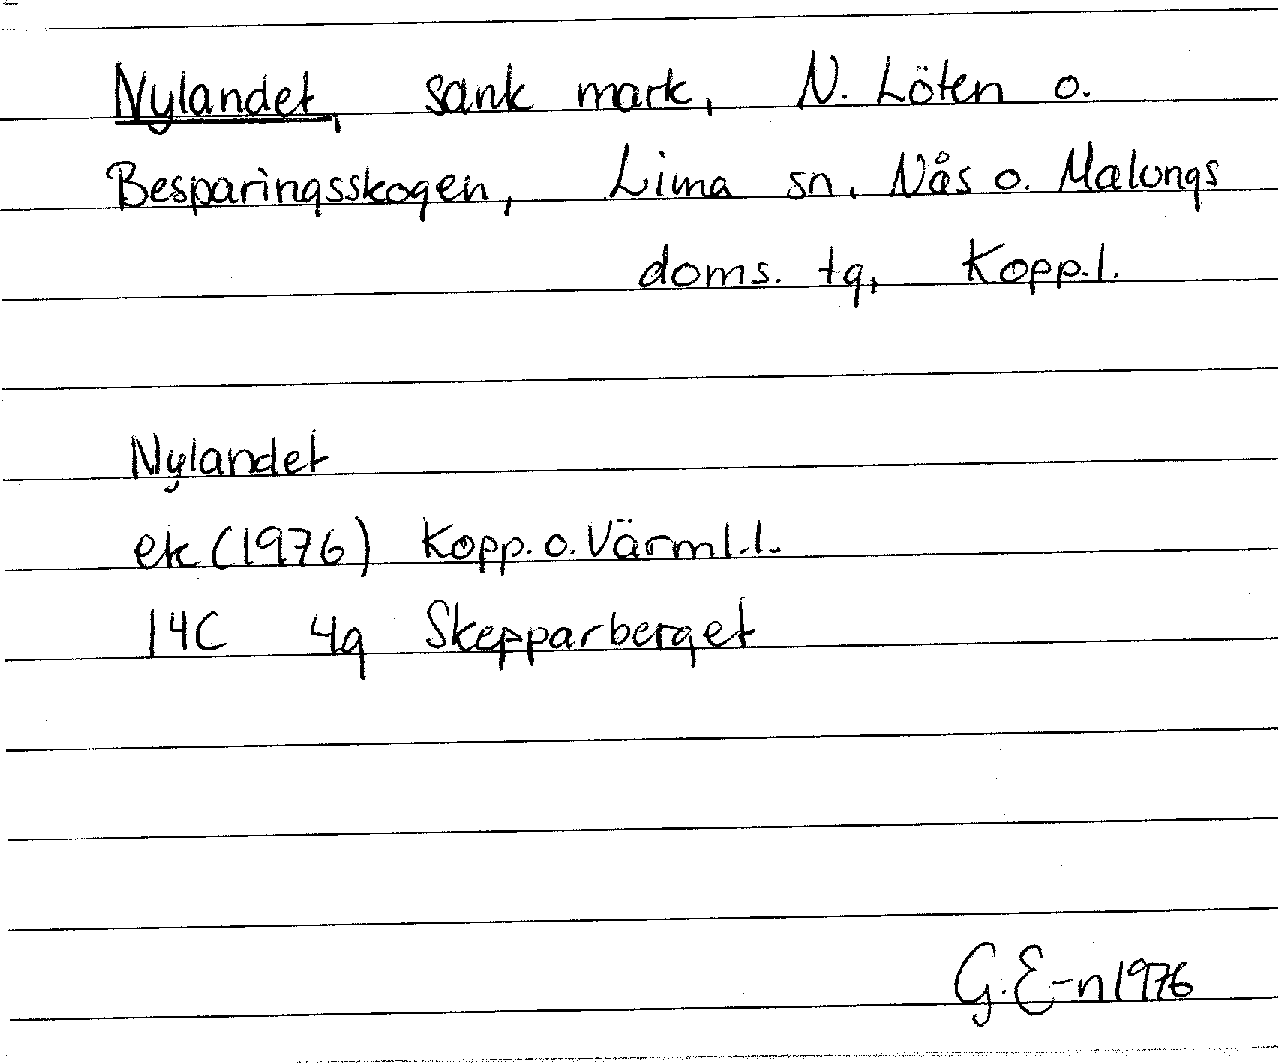 Nylandet, sank mark, N. Löten o.
Besparingsskogen, Lima sn. Nås o. Malungs
doms. tg, Kopp.l.
Nylandet
ek (1976) Kopp. o. Värml.l.
14C 4g Skepparberget
G. E-n 1976